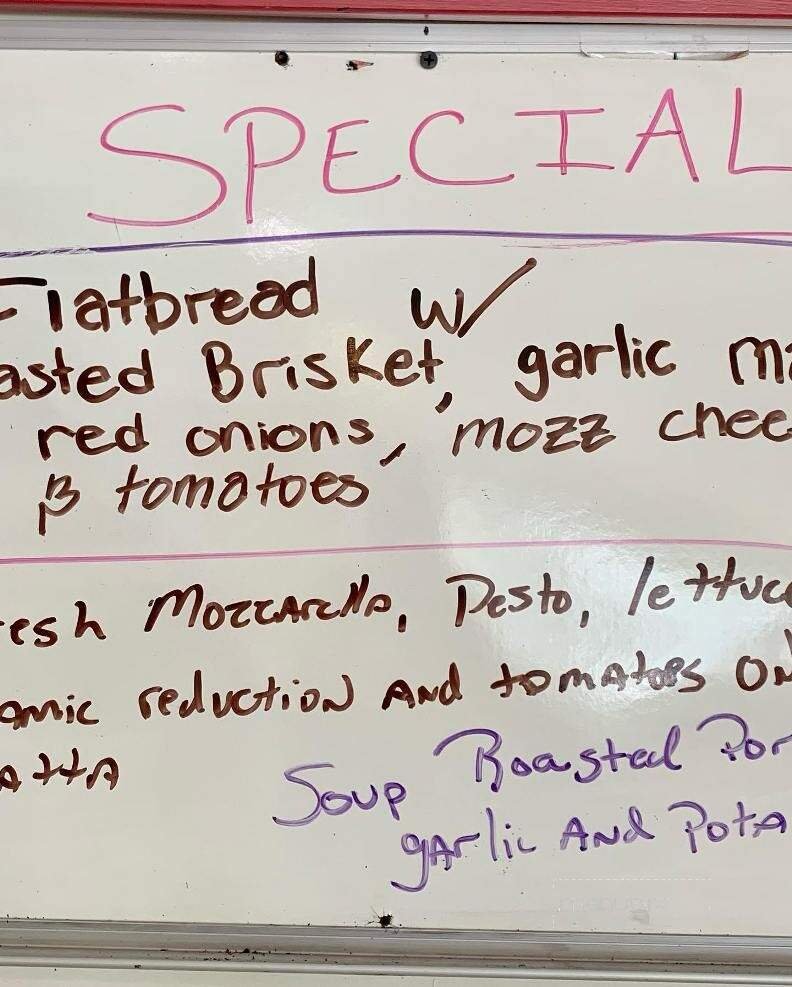 SPECIAL
Flatbread w/
asted Brisket, garlic ma
red onions, mozz chee
& tomatoes
resh Mozzarella, Pesto, lettuce
amic reduction and tomatoes on
atta
Soup Roasted Por
garlic and Pota